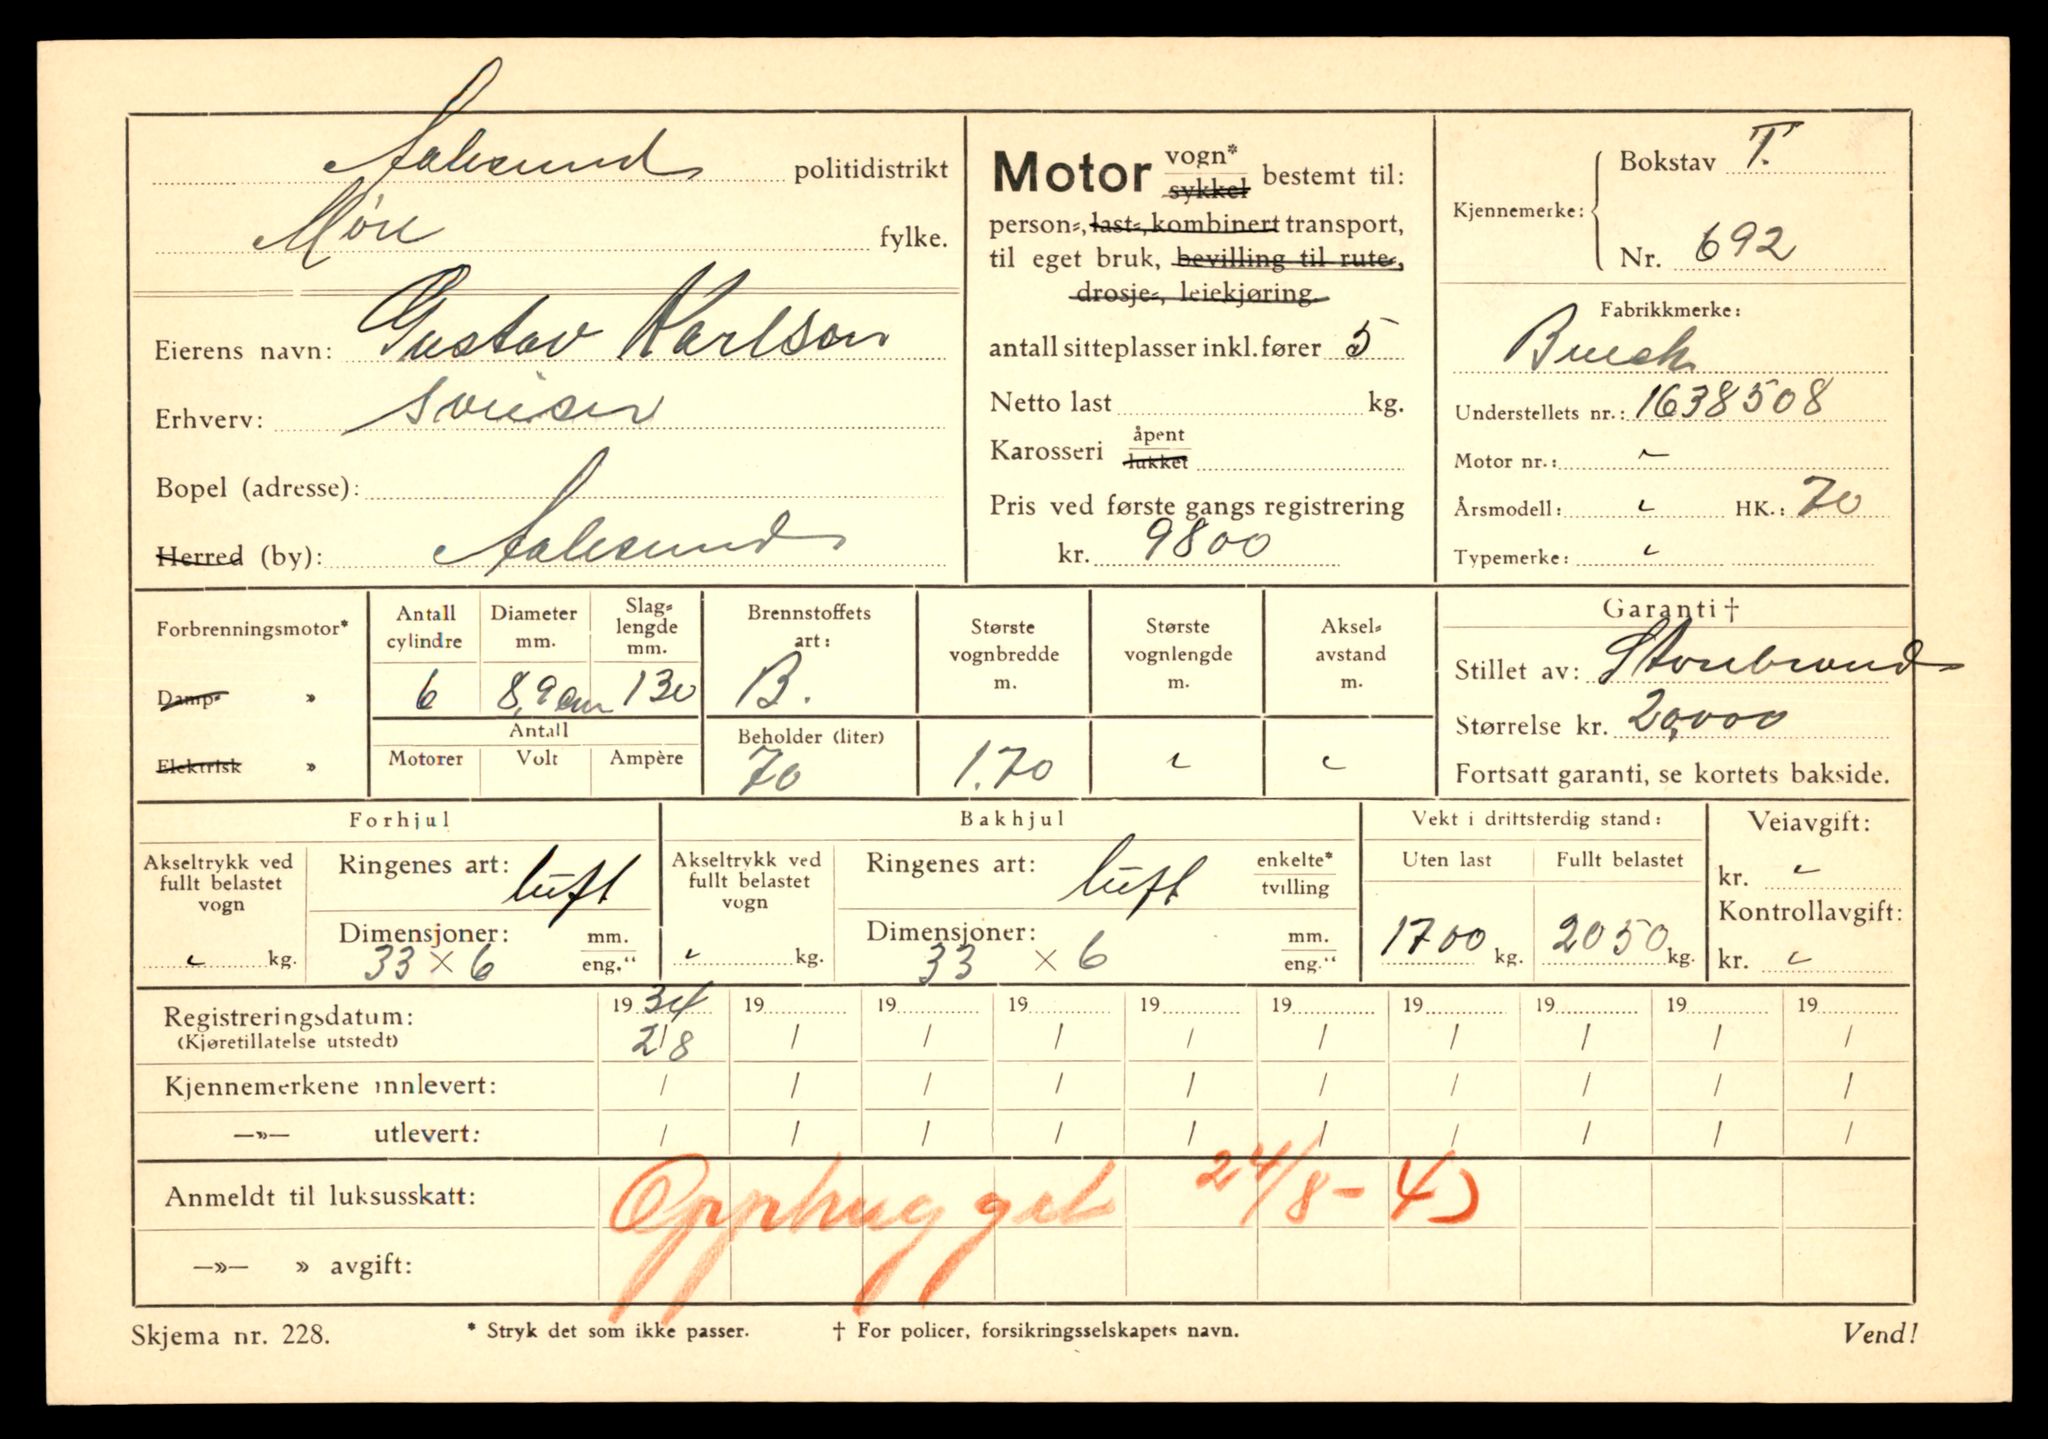 Aalesund politidistrikt
Møre fylke.
Eierens navn: Gustav Karlson
Erhverv:
Bopel (adresse):
Herred (by): Aalesund
Motor vogn* sykkel bestemt til:
person-, last-, kombinert transport,
til eget bruk, bevilling til rute-,
drosje-, leiekjøring.
antall sitteplasser inkl. fører 5
Netto last kg.
Karosseri åpent lukket
Pris ved første gangs registrering
kr. 9800
Kjennemerke: Bokstav T.
Nr. 692
Fabrikkmerke:
Buick
Understellets nr.: 1638508
Motor nr.: -
Årsmodell: - HK.: 70
Typemerke: -
Forbrenningsmotor*
Damp- »
Elektrisk »
Antall cylindre
6
Diameter mm.
8,9 cm
Slag-lengde mm.
130
Antall
Motorer Volt Ampère
Brennstoffets art:
B.
Beholder (liter)
70
Største vognbredde m.
1.70
Største vognlengde m.
-
Aksel-avstand m.
-
Garanti †
Stillet av: Storebrand
Størrelse kr. 20,000
Fortsatt garanti, se kortets bakside.
Forhjul
Akseltrykk ved fullt belastet vogn
- kg.
Ringenes art: luft
Dimensjoner: mm. eng."
33 × 6
Bakhjul
Akseltrykk ved fullt belastet vogn
- kg.
Ringenes art: luft enkelte* tvilling
Dimensjoner: mm. eng."
33 × 6
Vekt i driftsferdig stand:
Uten last Fullt belastet
1700 kg. 2050 kg.
Veiavgift:
kr. -
Kontrollavgift:
kr. -
Registreringsdatum: 1934 19 19 19 19 19 19 19 19 19
(Kjøretillatelse utstedt) 2/8 / / / / / / / / /
Kjennemerkene innlevert: / / / / / / / / / /
—»— utlevert: / / / / / / / / / /
Anmeldt til luksusskatt: Opphugget 24/8-45
—»— » avgift:
Skjema nr. 228. * Stryk det som ikke passer. † For policer, forsikringsselskapets navn. Vend!